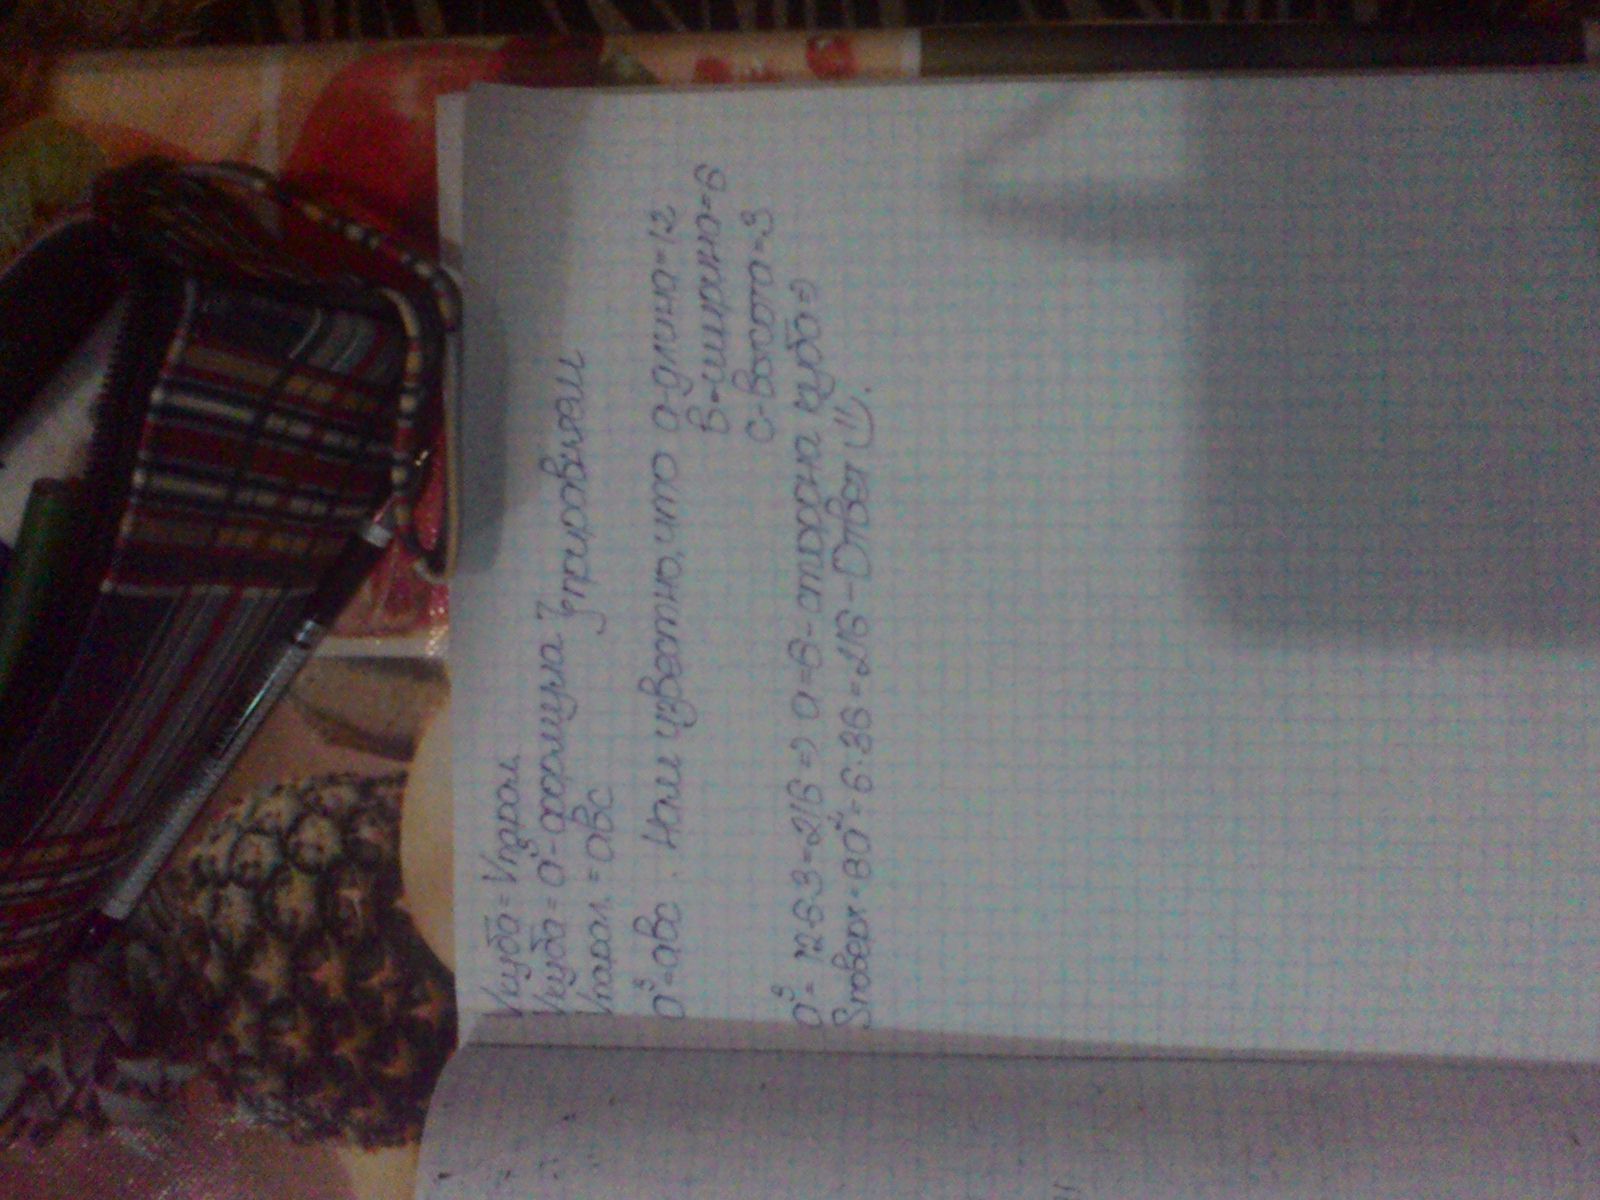 Vкуба = Vпарал.
Vкуба = a³ - формула } приравняем
Vпарал. = aвc
a³ = aвc. Нам известно, что a-длина = 12
в-ширина = 6
c-высота = 3
a³ = 12·6·3 = 216 => a = 6 - сторона куба =>
Sповерх = 6a² = 6·36 = 216 - Ответ